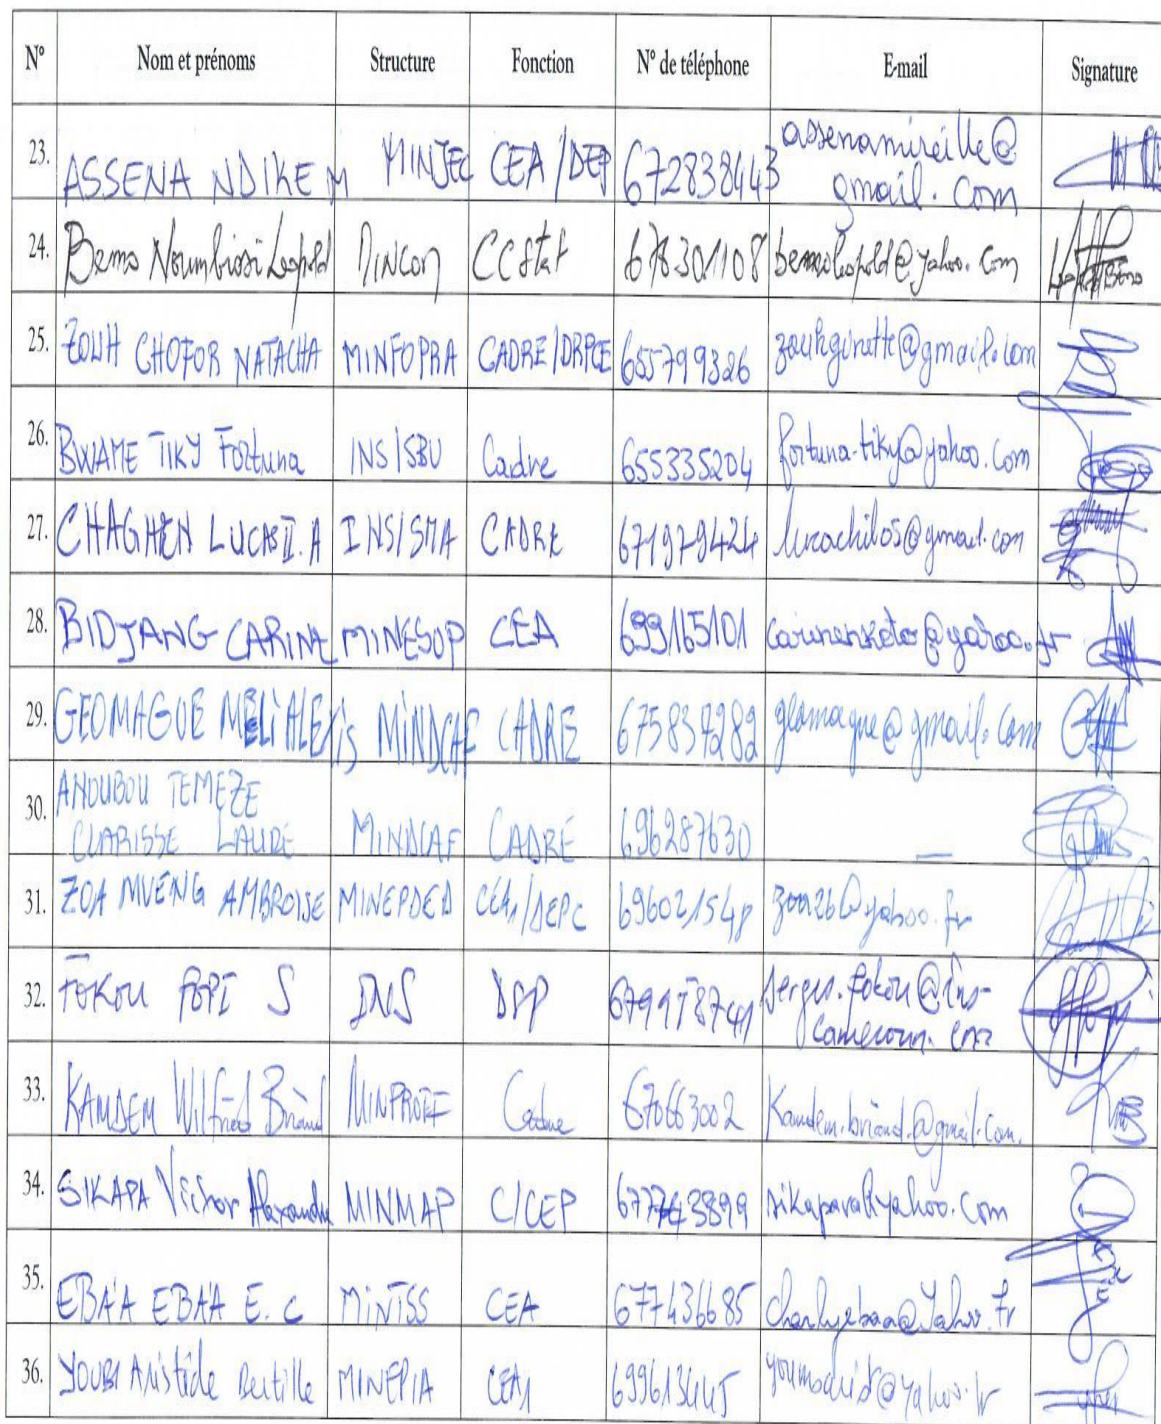 N° Nom et prénoms Structure Fonction N° de téléphone E-mail Signature
23. ASSENA NDIKEM MINJEC CEA/DEP 672838443 assenamireille@
gmail.com
24. Bemo Noumbissi Leopold MINCOM CCstat 678301108 bemoleopold@yahoo.com
25. ZOUH CHOFOR NATACHA MINFOPRA CADRE/DRPCE 655799326 zouhginette@gmail.com
26. BWAME TIKY Fortuna INS/SBU Cadre 655335204 fortuna-tiky@yahoo.com
27. CHAGHEN LUCAS II. A INS/SMA CADRE 671979424 lucachilos@gmail.com
28. BIDJANG CARINE MINESUP CEA 699165101 @yahoo.fr
29. GEOMAGUE MELI ALEXIS MINDCAF CADRE 675837282 geomague@gmail.com
30. ANOUBOU TEMEZE
CLARISSE LAURE MINDCAF CADRE 696287630 —
31. ZOA MVENG AMBROISE MINEPDED CEA1/DEPC 696021548 zoa26@yahoo.fr
32. FOKOU POPI S INS DSP serges.fokou@ins-
cameroun.cm
33. KAMDEM Wilfried Briand MINPROFF Cadre 670663002 Kamdem.briand.@gmail.com.
34. SIKAPA Victor Alexandre MINMAP C/CEP 677743899 sikapava@yahoo.com
35. EBA'A EBA'A E. C MINTSS CEA 677436685 charlyebaa@Yahoo.fr
36. YOUBI Aristide Bertille MINEPIA CEA1 699613445 @yahoo.fr